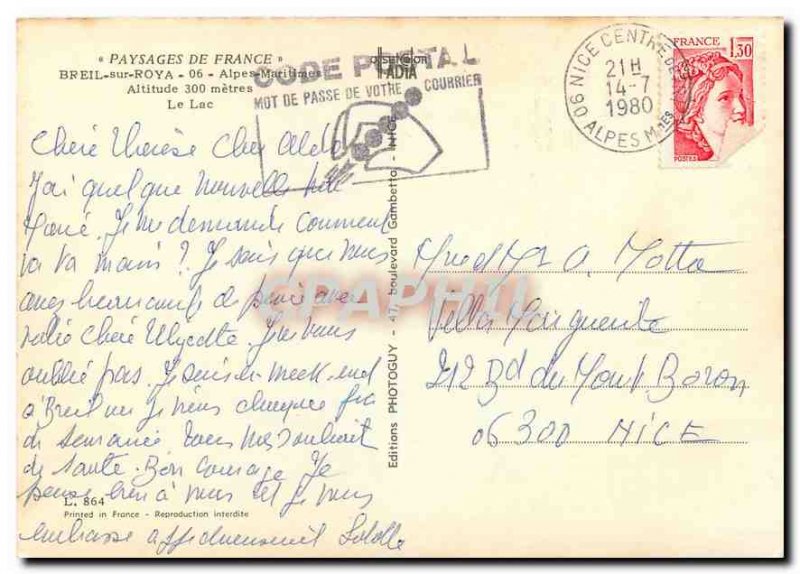 « PAYSAGES DE FRANCE »
BREIL-sur-ROYA - 06 - Alpes-Maritimes
Altitude 300 mètres
Le Lac
CODE POSTAL
MOT DE PASSE DE VOTRE COURRIER
06 NICE CENTRE
21H
14-7
1980
ALPES MMES
FRANCE
1,30
POSTES
Chère Thérèse Cher Aldo
J'ai quelque nouvelle
Je me demande comment
va ta main ? Je sais que vous
avez beaucoup de peine avec
votre chère Je ne vous
oublie pas. Je suis en week-end
à Breil où je viens chaque fin
de semaine Tous mes souhait
de santé. Bon courage Je
pense bien à vous et je vous
embrasse affectueusement
L. 864
Printed in France - Reproduction interdite
Editions PHOTOGUY - 47, boulevard Gambetta - NICE
CPAPHIL
Mme et Mr A. Motta
Villa Marguerite
212 Bd du Mont Boron
06300 NICE